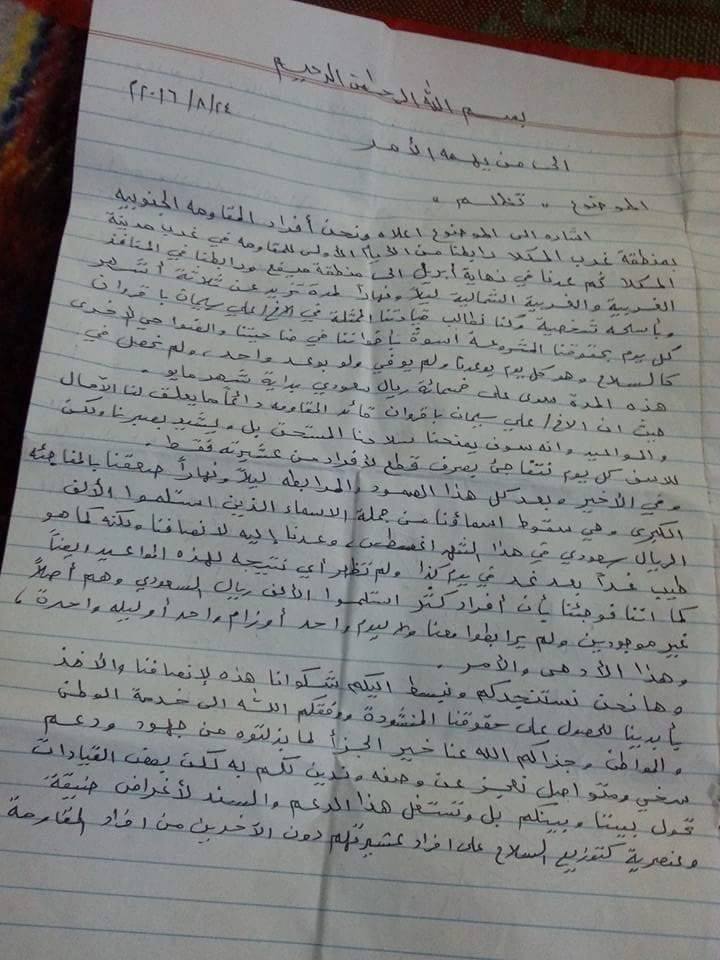 بسم الله الرحمن الرحيم
٢٠١٦/٨/٢٤م
الى من يهمه الأمر
الموضوع " تظلم "
اشاره الى الموضوع اعلاه ونحن أفراد المقاومه الجنوبيه
بمنطقة غرب المكلا رابطنا من الأيام الأولى للمقاومه في غرب مدينة
المكلا ثم عدنا في نهاية أبريل الى منطقة ميفع ورابطنا في المنافذ
الغربية والغربية الشمالية ليلاً ونهاراً لمدة تزيد عن ثلاثة أشهر
وبأسلحه شخصية وكنا نطالب قيادتنا الممثلة في الاخ/ علي سليمان باقروان
كل يوم بحقوقنا المشروعة أسوة بأخواننا في ضاحيتنا والضواحي الأخرى
كالسلاح وهو كل يوم يوعدنا ولم يوفى ولو بوعد واحد، ولم نحصل في
هذه المدة سوى على خمسمائة ريال سعودي بداية شهر مايو.
حيث ان الاخ/ علي سليمان باقروان قائد المقاومه دائماً ما يعلق لنا الآمال
والمواعيد وانه سوف يمنحنا سلاحنا المستحق بل ويشيد بصبرنا ولكن
للاسف كل يوم نتفاجئ بصرف قطع لأفراد من عشيرته فقط.
وفي الأخير وبعد كل هذا الصمود والمرابطه ليلاً ونهاراً صعقنا بالمفاجئه
الكبرى وهي سقوط اسماؤنا من جملة الاسماء الذين استلموا الألف
الريال سعودي في هذا الشهر أغسطس، وعدنا إليه لانصافنا ولكنه كما هو
طيب غداً بعد غد في يوم كذا ولم تظهر أي نتيجه لهذه المواعيد وايضاً
كما اننا فوجئنا بأن أفراد كثر استلموا الألف ريال السعودي وهم أصلاً
غير موجودين ولم يرابطوا معنا ولا ليوم واحد أو زام واحد أو ليله واحدة،
وهذا الأدهى والأمر.
وها نحن نستنجدكم ونبسط اليكم شكوانا هذه لإنصافنا والأخذ
بأيدينا للحصول على حقوقنا المنشودة ووفقكم الله الى خدمة الوطن
والمواطن وجزاكم الله عنا خير الجزأ لما بذلتوه من جهود ودعم
سخي ومتواصل نعجز عن وصفه وندين لكم به لكن بعض القيادات
تحول بيننا وبينكم بل وتستغل هذا الدعم والسند لأغراض ضيقة
وعنصرية كتوزيع السلاح على افراد عشيرتهم دون الآخرين من افراد المقاومة